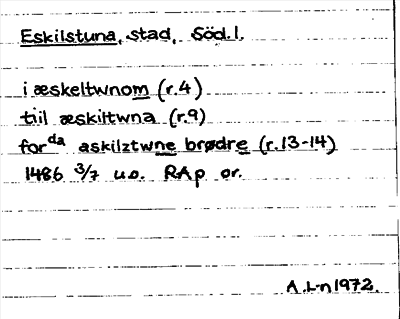 Eskilstuna, stad, Söd.l.
i æskeltwnom (r.4)
tiil æskiltwna (r.9)
for da askilztwne brødre (r.13-14)
1486 3/7 u.o. RAp or.
A.L-n 1972.